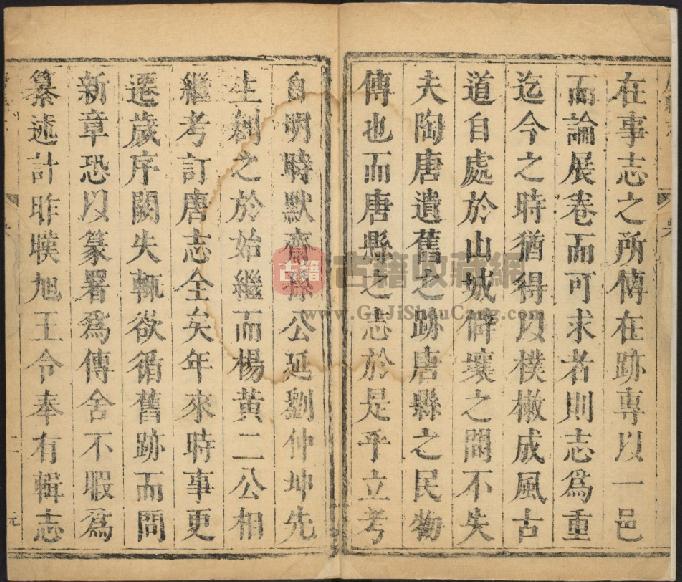 在事志之所傳在跡專以一邑
而論展卷而可求者則志為重
迄今之時猶得以樸樕成風古
道自處於山城僻壤之間不失
夫陶唐遺舊之跡唐縣之民物
傳也而唐縣之志於是乎立考
自明時默齋 公延劉仲坤先
生創之於始繼而楊黃二公相
繼考訂唐志全矣年來時事更
遷歲序闕失輒欲循舊跡而問
新章恐以篆署為傳舍不暇為
纂述計昨暵旭王令奉有輯志
古籍
古籍收藏網
www.GuJiShouCang.com